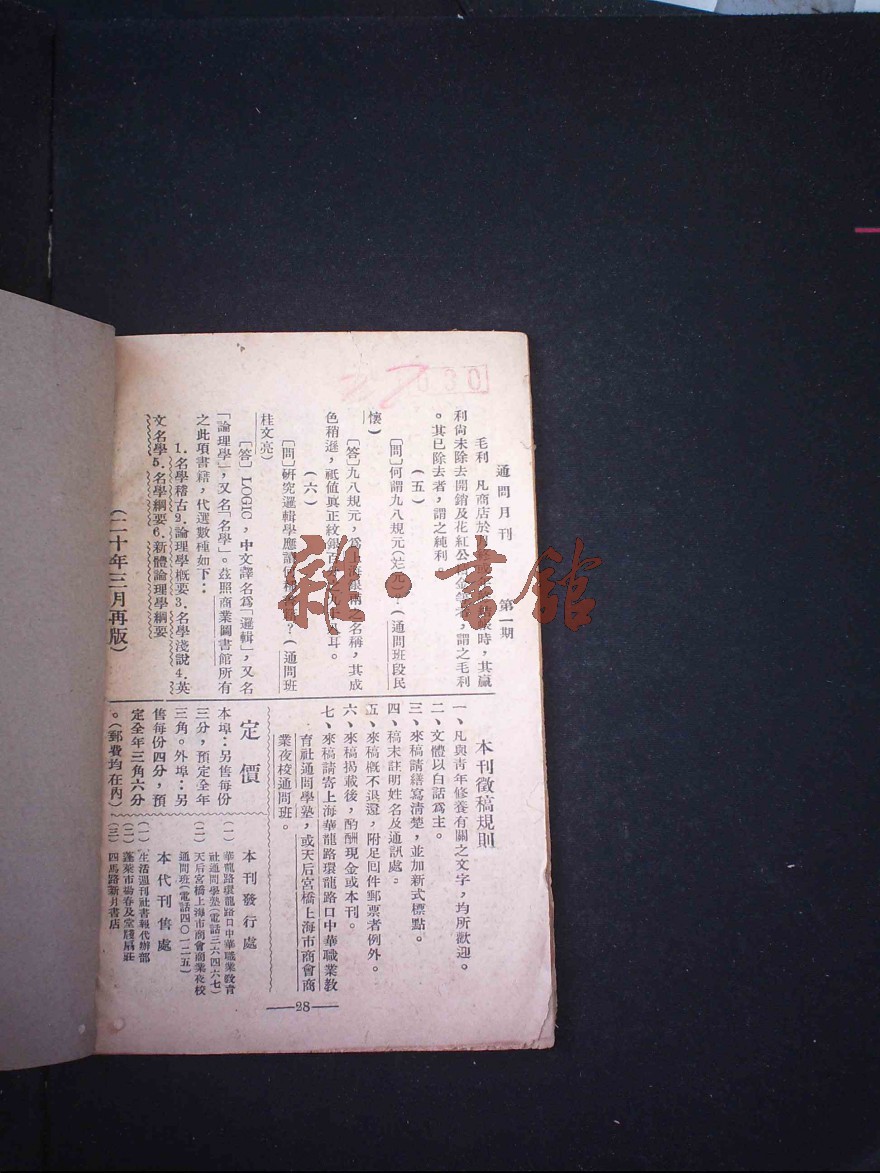 通問月刊 第一期
毛利 凡商店於 時，其贏
利尙未除去開銷及花紅公 金 者，謂之毛利
。其已除去者，謂之純利。
（五）
［問］何謂九八規元（ 元）？（通問班段民
懷）
［答］九八規元，爲上海銀兩之名稱，其成
色稍遜，祇値眞正紋銀百 耳。
（六）
［問］研究邏輯學應讀何種書 ？（通問班
桂文亮）
［答］LOGIC，中文譯名爲「邏輯」，又名
「論理學」，又名「名學」。茲照商業圖書館所有
之此項書籍，代選數種如下：
1.名學稽古2.論理學概要3.名學淺說4.英
文名學5.名學綱要6.新體論理學綱要
（二十年三月再版）
本刊徵稿規則
一、凡與靑年修養有關之文字，均所歡迎。
二、文體以白話爲主。
三、來稿請繕寫清楚，並加新式標點。
四、稿末註明姓名及通訊處。
五、來稿概不退還，附足囘件郵票者例外。
六、來稿揭載後，酌酬現金或本刊。
七、來稿請寄上海華龍路環龍路口中華職業敎
育社通問學塾，或天后宮橋上海市商會商
業夜校通問班。
定價
本埠：另售每份
三分，預定全年
三角。外埠：另
售每份四分，預
定全年三角六分
。（郵費均在內）
本刊發行處
（一）華龍路環龍路口中華職業敎育
社通問學塾（電話三六四六七）
（二）天后宮橋上海市商會商業夜校
通問班（電話四〇一二五）
本代刊售處
（一）生活週刊社書報代辦部
（二）蓬萊市場春及堂牋扇莊
（三）四馬路新月書店
—28—
030
雜·書館